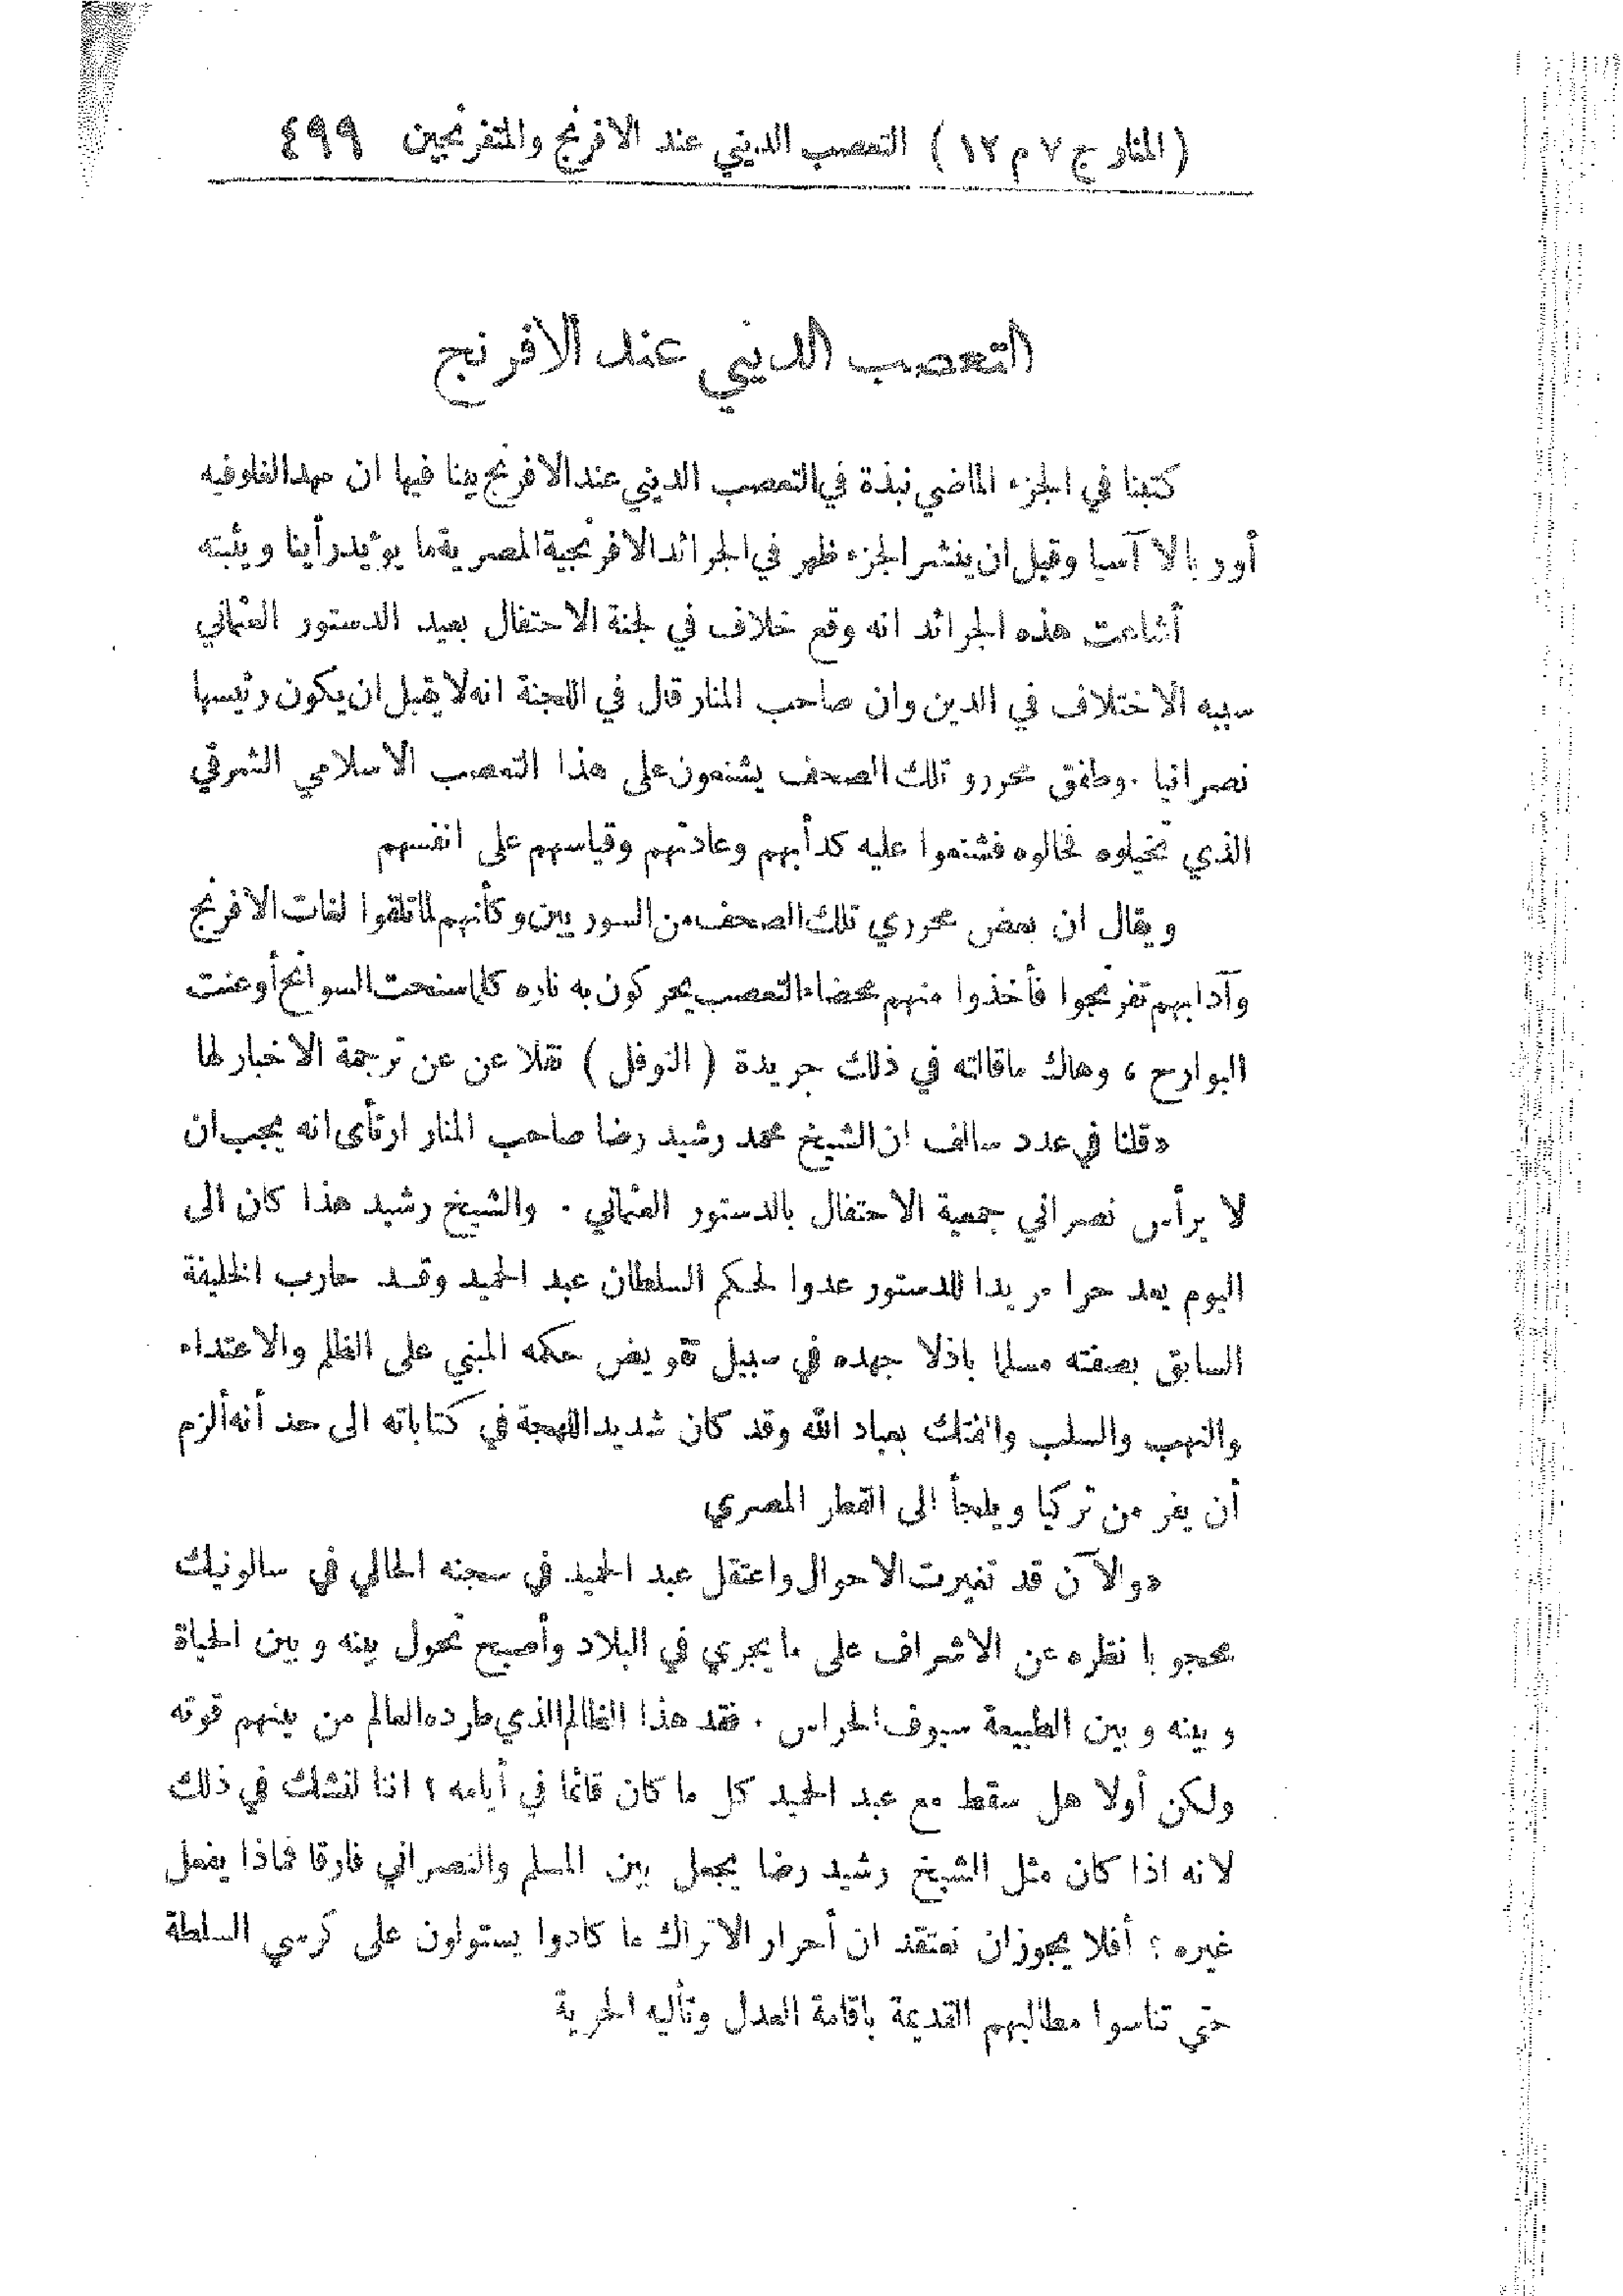 (المنار ج ٧ م ١٢) التعصب الديني عند الافرنج والمتفرنجين ٤٩٩
التعصب الديني عند الافرنج
كتبنا في الجزء الماضي نبذة في التعصب الديني عند الافرنج بينا فيها ان مهد الغلو فيه
أوربا لا آسيا وقبل ان ينشر الجزء ظهر في الجرائد الافرنجية المصرية ما يؤيد رأينا ويثبته
أشاعت هذه الجرائد انه وقع خلاف في لجنة الاحتفال بعيد الدستور العثماني
سببه الاختلاف في الدين وان صاحب المنار قال في اللجنة انه لا يقبل ان يكون رئيسها
نصرانيا . وطفق محررو تلك الصحف يشنعون على هذا التعصب الاسلامي الشرقي
الذي تخيلوه فخالوه فشنعوا عليه كدأبهم وعادتهم وقياسهم على انفسهم
ويقال ان بعض محرري تلك الصحف من السوريين وكأنهم لما تلقوا لغات الافرنج
وآدابهم تفرنجوا فأخذوا منهم محضاء التعصب يحركون به ناره كلما سنحت السوانح أو عنت
البوارح ، وهاك ما قالته في ذلك جريدة ( النوفل ) نقلا عن عن ترجمة الاخبار لها
«قلنا في عدد سالف ان الشيخ محمد رشيد رضا صاحب المنار ارتأى انه يجب ان
لا يرأس نصراني جمعية الاحتفال بالدستور العثماني . والشيخ رشيد هذا كان الى
اليوم يعد حرا مريدا للدستور عدوا لحكم السلطان عبد الحميد وقد حارب الخليفة
السابق بصفته مسلما باذلا جهده في سبيل تقويض حكمه المبني على الظلم والاعتداء
والنهب والسلب والفتك بعباد الله وقد كان شديد اللهجة في كتاباته الى حد أنه ألزم
أن يفر من تركيا ويلجأ الى القطر المصري
«والآن قد تغيرت الاحوال واعتقل عبد الحميد في سجنه الحالي في سالونيك
محجوبا نظره عن الاشراف على ما يجري في البلاد وأصبح تحول بينه وبين الحياة
وبينه وبين الطبيعة سيوف الحراس . فقد هذا الظالم الذي طارده العالم من بينهم قوته
ولكن أولا هل سقط مع عبد الحميد كل ما كان قائما في أيامه ؟ اننا لنشك في ذلك
لانه اذا كان مثل الشيخ رشيد رضا يجعل بين المسلم والنصراني فارقا فماذا يفعل
غيره ؟ أفلا يجوز ان نعتقد ان أحرار الاتراك ما كادوا يستولون على كرسي السلطة
حتى تناسوا مطالبهم القديمة باقامة العدل وتأليه الحرية